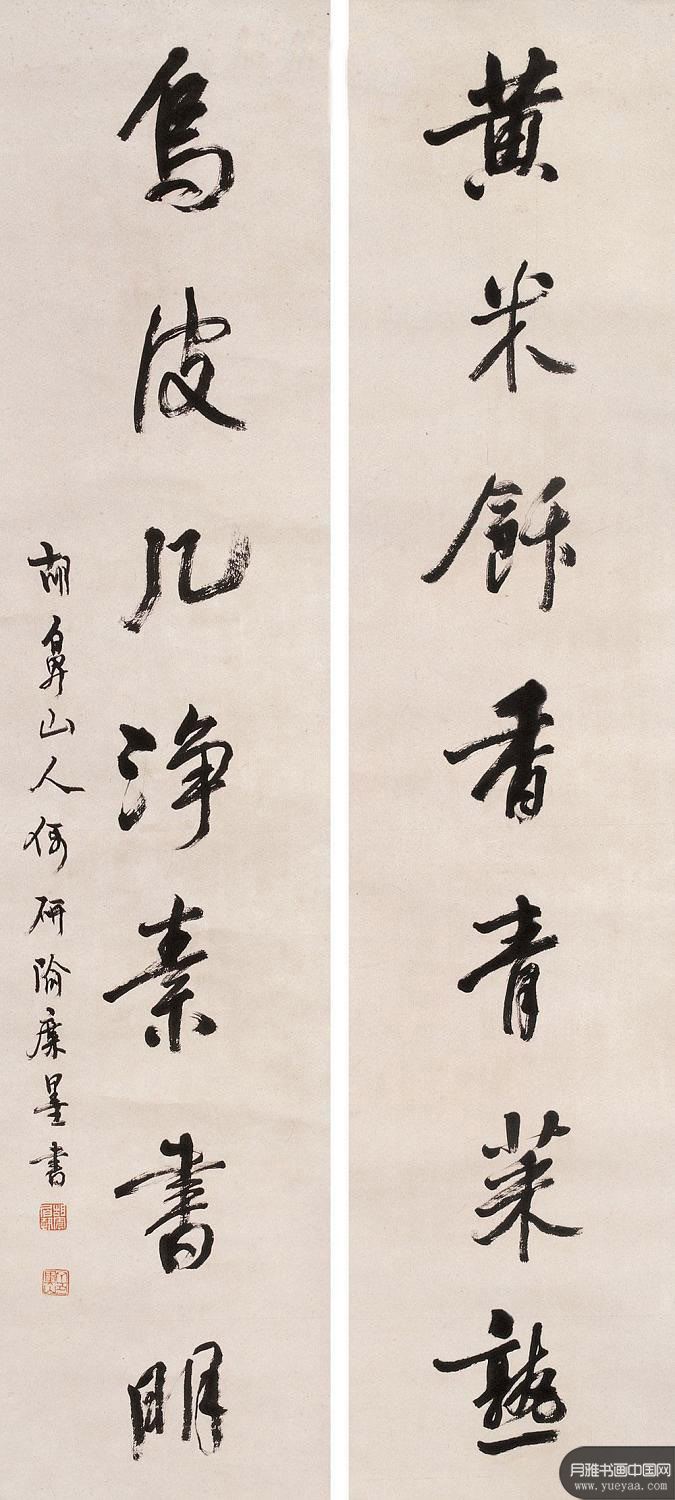 黄米飰香青菜熟
烏皮几淨素書明
胡鼻山人研隃麋墨書
月雅书画中国网
www.yueyaa.com